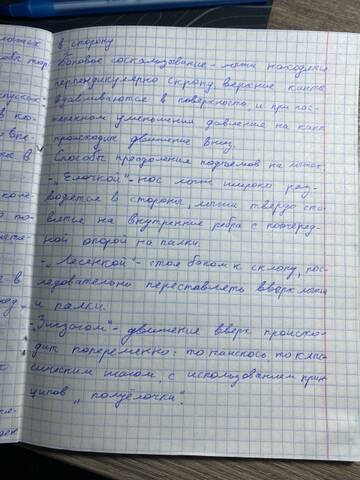 в сторону
Боковое соскальзывание - лыжи находятся
перпендикулярно склону, верхние канты
вдавливаются в поверхность и при пос-
тепенном уменьшении давления на кант
происходит движение вниз.
Способы преодоления подъемов на лыжах.
- "Ёлочкой" - нос лыж широко раз-
водятся в стороны, лыжи твердо ста-
вятся на внутренние ребра с поочеред-
ной опорой на палки.
- "Лесенкой" - стоя боком к склону, пос-
ледовательно переставлять вверх лыжи
и палки.
- "Зигзагом" - движение вверх происхо-
дит попеременно: то наискось, то клас-
сическим шагом, с использованием прин-
ципов "полуёлочки".